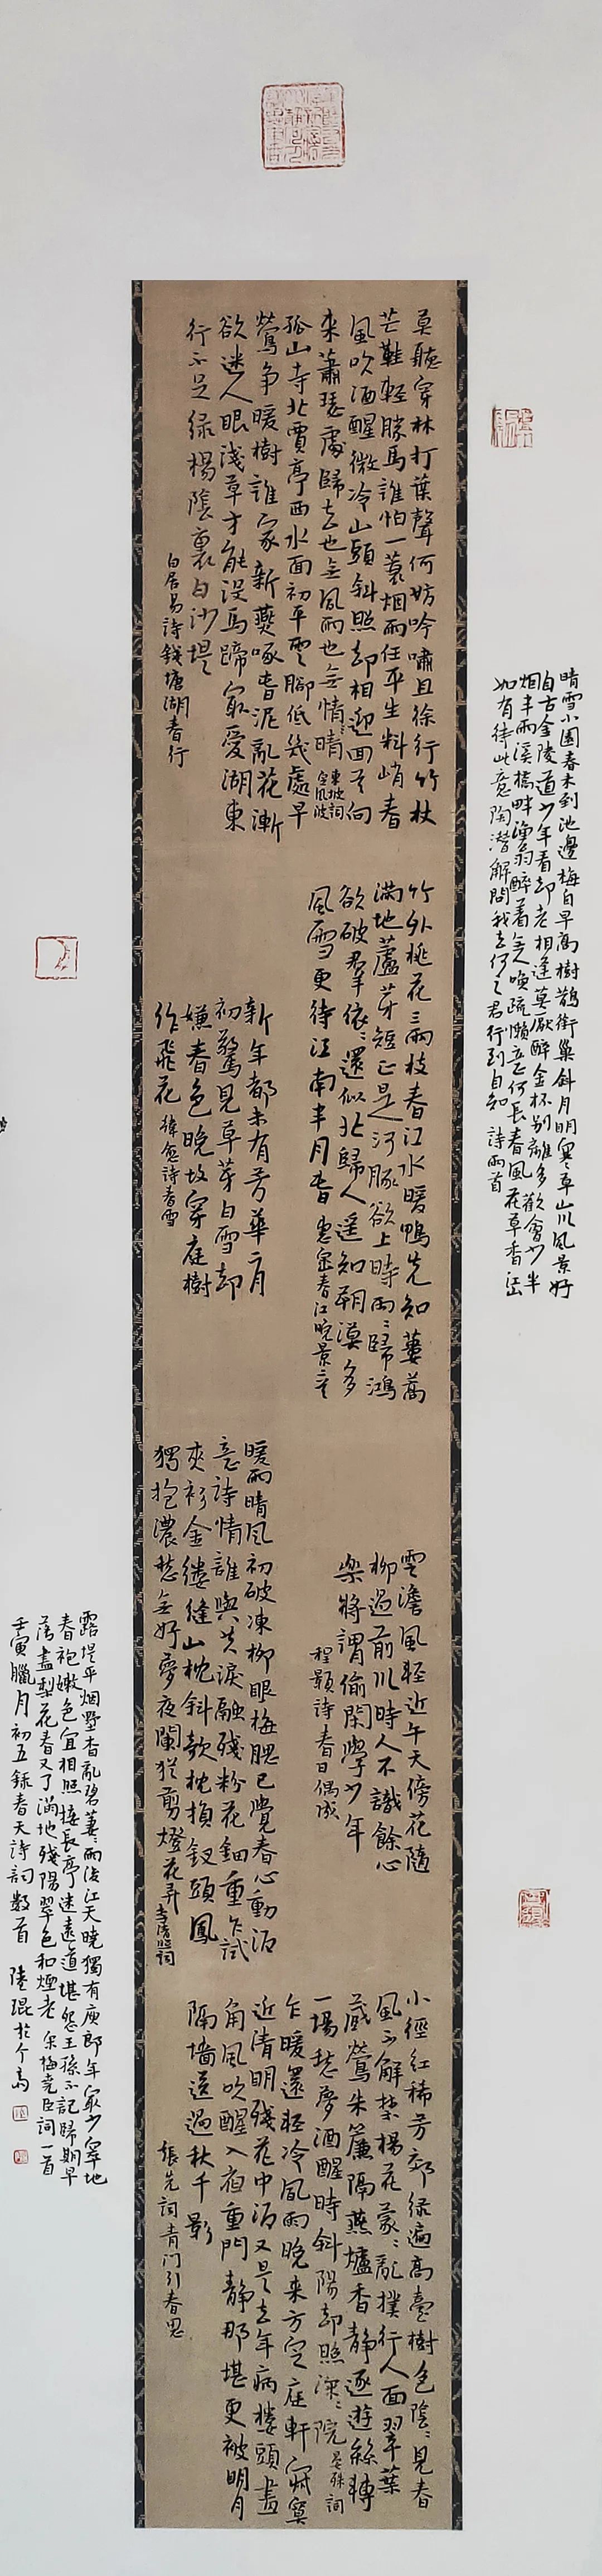 晴雪小園春未到池邊梅自早高樹鵲銜巢斜月明寒草山川風景好
自古金陵道少年看却老相逢莫厭醉金杯別離多歡會少半
烟半雨溪橋畔漁翁醉着無人喚疏懶意何長春風花草香江山
如有待此意陶潛解問我去何之君行到自知 詩兩首
莫聽穿林打葉聲何妨吟嘯且徐行竹杖
芒鞋輕勝馬誰怕一蓑烟雨任平生料峭春
風吹酒醒微冷山頭斜照却相迎回首向
來蕭瑟處歸去也無風雨也無情晴 東坡詞定風波
孤山寺北賈亭西水面初平雲腳低幾處早
鶯爭暖樹誰家新燕啄春泥亂花漸
欲迷人眼淺草才能沒馬蹄最愛湖東
行不足綠楊陰裏白沙堤
白居易詩錢塘湖春行
竹外桃花三兩枝春江水暖鴨先知蔞蒿
滿地蘆芽短正是河豚欲上時兩〻歸鴻
欲破羣依〻還似北歸人遥知朔漠多
風雪更待江南半月春 惠崇春江晚景二首
新年都未有芳華二月
初驚見草芽白雪却
嫌春色晚故穿庭樹
作飛花 韓愈詩春雪
雲澹風輕近午天傍花隨
柳過前川時人不識餘心
樂將謂偷閑學少年
程顥詩春日偶成
暖雨晴風初破凍柳眼梅腮已覺春心動酒
意詩情誰與共淚融殘粉花鈿重乍試
夾衫金縷縫山枕斜欹枕損釵頭鳳
獨抱濃愁無好夢夜闌猶剪燈花弄 李清照詞
小徑紅稀芳郊綠遍高臺樹色陰〻見春
風不解禁楊花蒙〻亂撲行人面翠葉
藏鶯朱簾隔燕爐香靜逐遊絲轉
一場愁夢酒醒時斜陽却照深〻院 晏殊詞
乍暖還輕冷風雨晚來方定庭軒寂寞
近清明殘花中酒又是去年病樓頭畫
角風吹醒入夜重門靜那堪更被明月
隔墻送過秋千影
張先詞青門引春思
露堤平烟墅杳亂碧萋〻雨後江天曉獨有庾郎年最少窣地
春袍嫩色宜相照接長亭迷遠道堪怨王孫不記歸期早
落盡梨花春又了滿地殘陽翠色和煙老 宋梅堯臣詞一首
壬寅臘月初五録春天詩詞數首 陸琨於